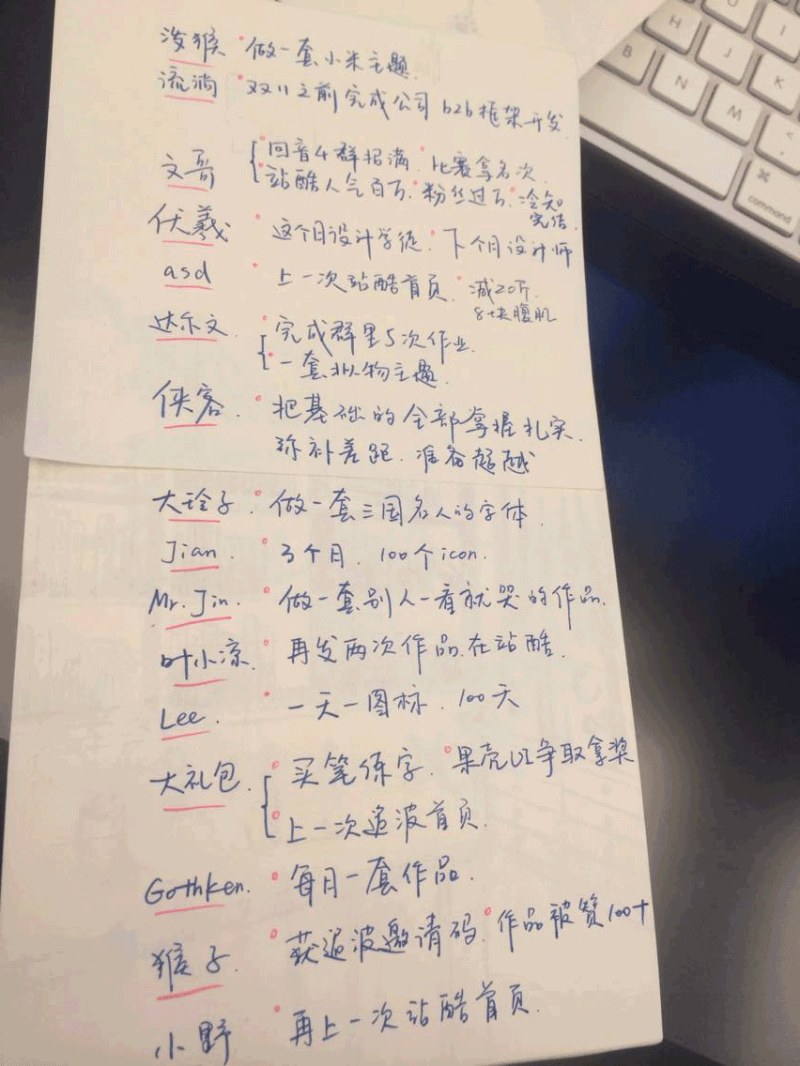 泼猴 做一套小米主题
流淌 双11之前完成公司 b2b框架开发
文哥 回音4群招满. 比赛拿名次
站酷人气百万. 粉丝过万. 冷知
完结.
伏羲 这个月设计学徒. 下个月设计师
asd 上一次站酷首页. 减20斤.
8块腹肌
达尔文 完成群里5次作业.
一套拟物主题.
侠客. 把基础的全部掌握扎实.
弥补差距. 准备超越
大玲子 做一套三国名人的字体.
Jian. 3个月. 100个icon.
Mr.Jin. 做一套别人一看就哭的作品.
叶小凉. 再发两次作品.在站酷.
Lee. 一天一图标. 100天
大礼包. 买笔练字. 果壳UI争取拿奖
上一次追波首页.
Gothken. 每月一套作品.
猴子. 获追波邀请码. 作品被赞100+
小野 再上一次站酷首页.
B N M H J K U I < , ⌘ command